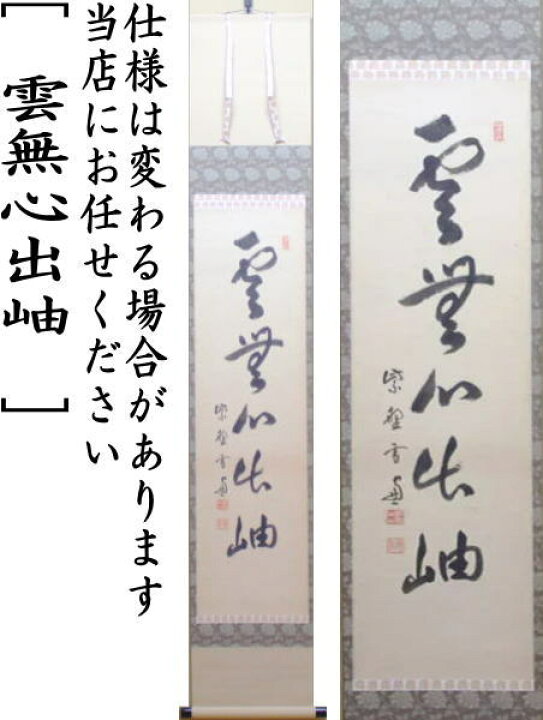 仕様は変わる場合があります
当店にお任せください
[ 雲無心出岫 ]
雲無心出岫
紫野
雲無心出岫
紫野